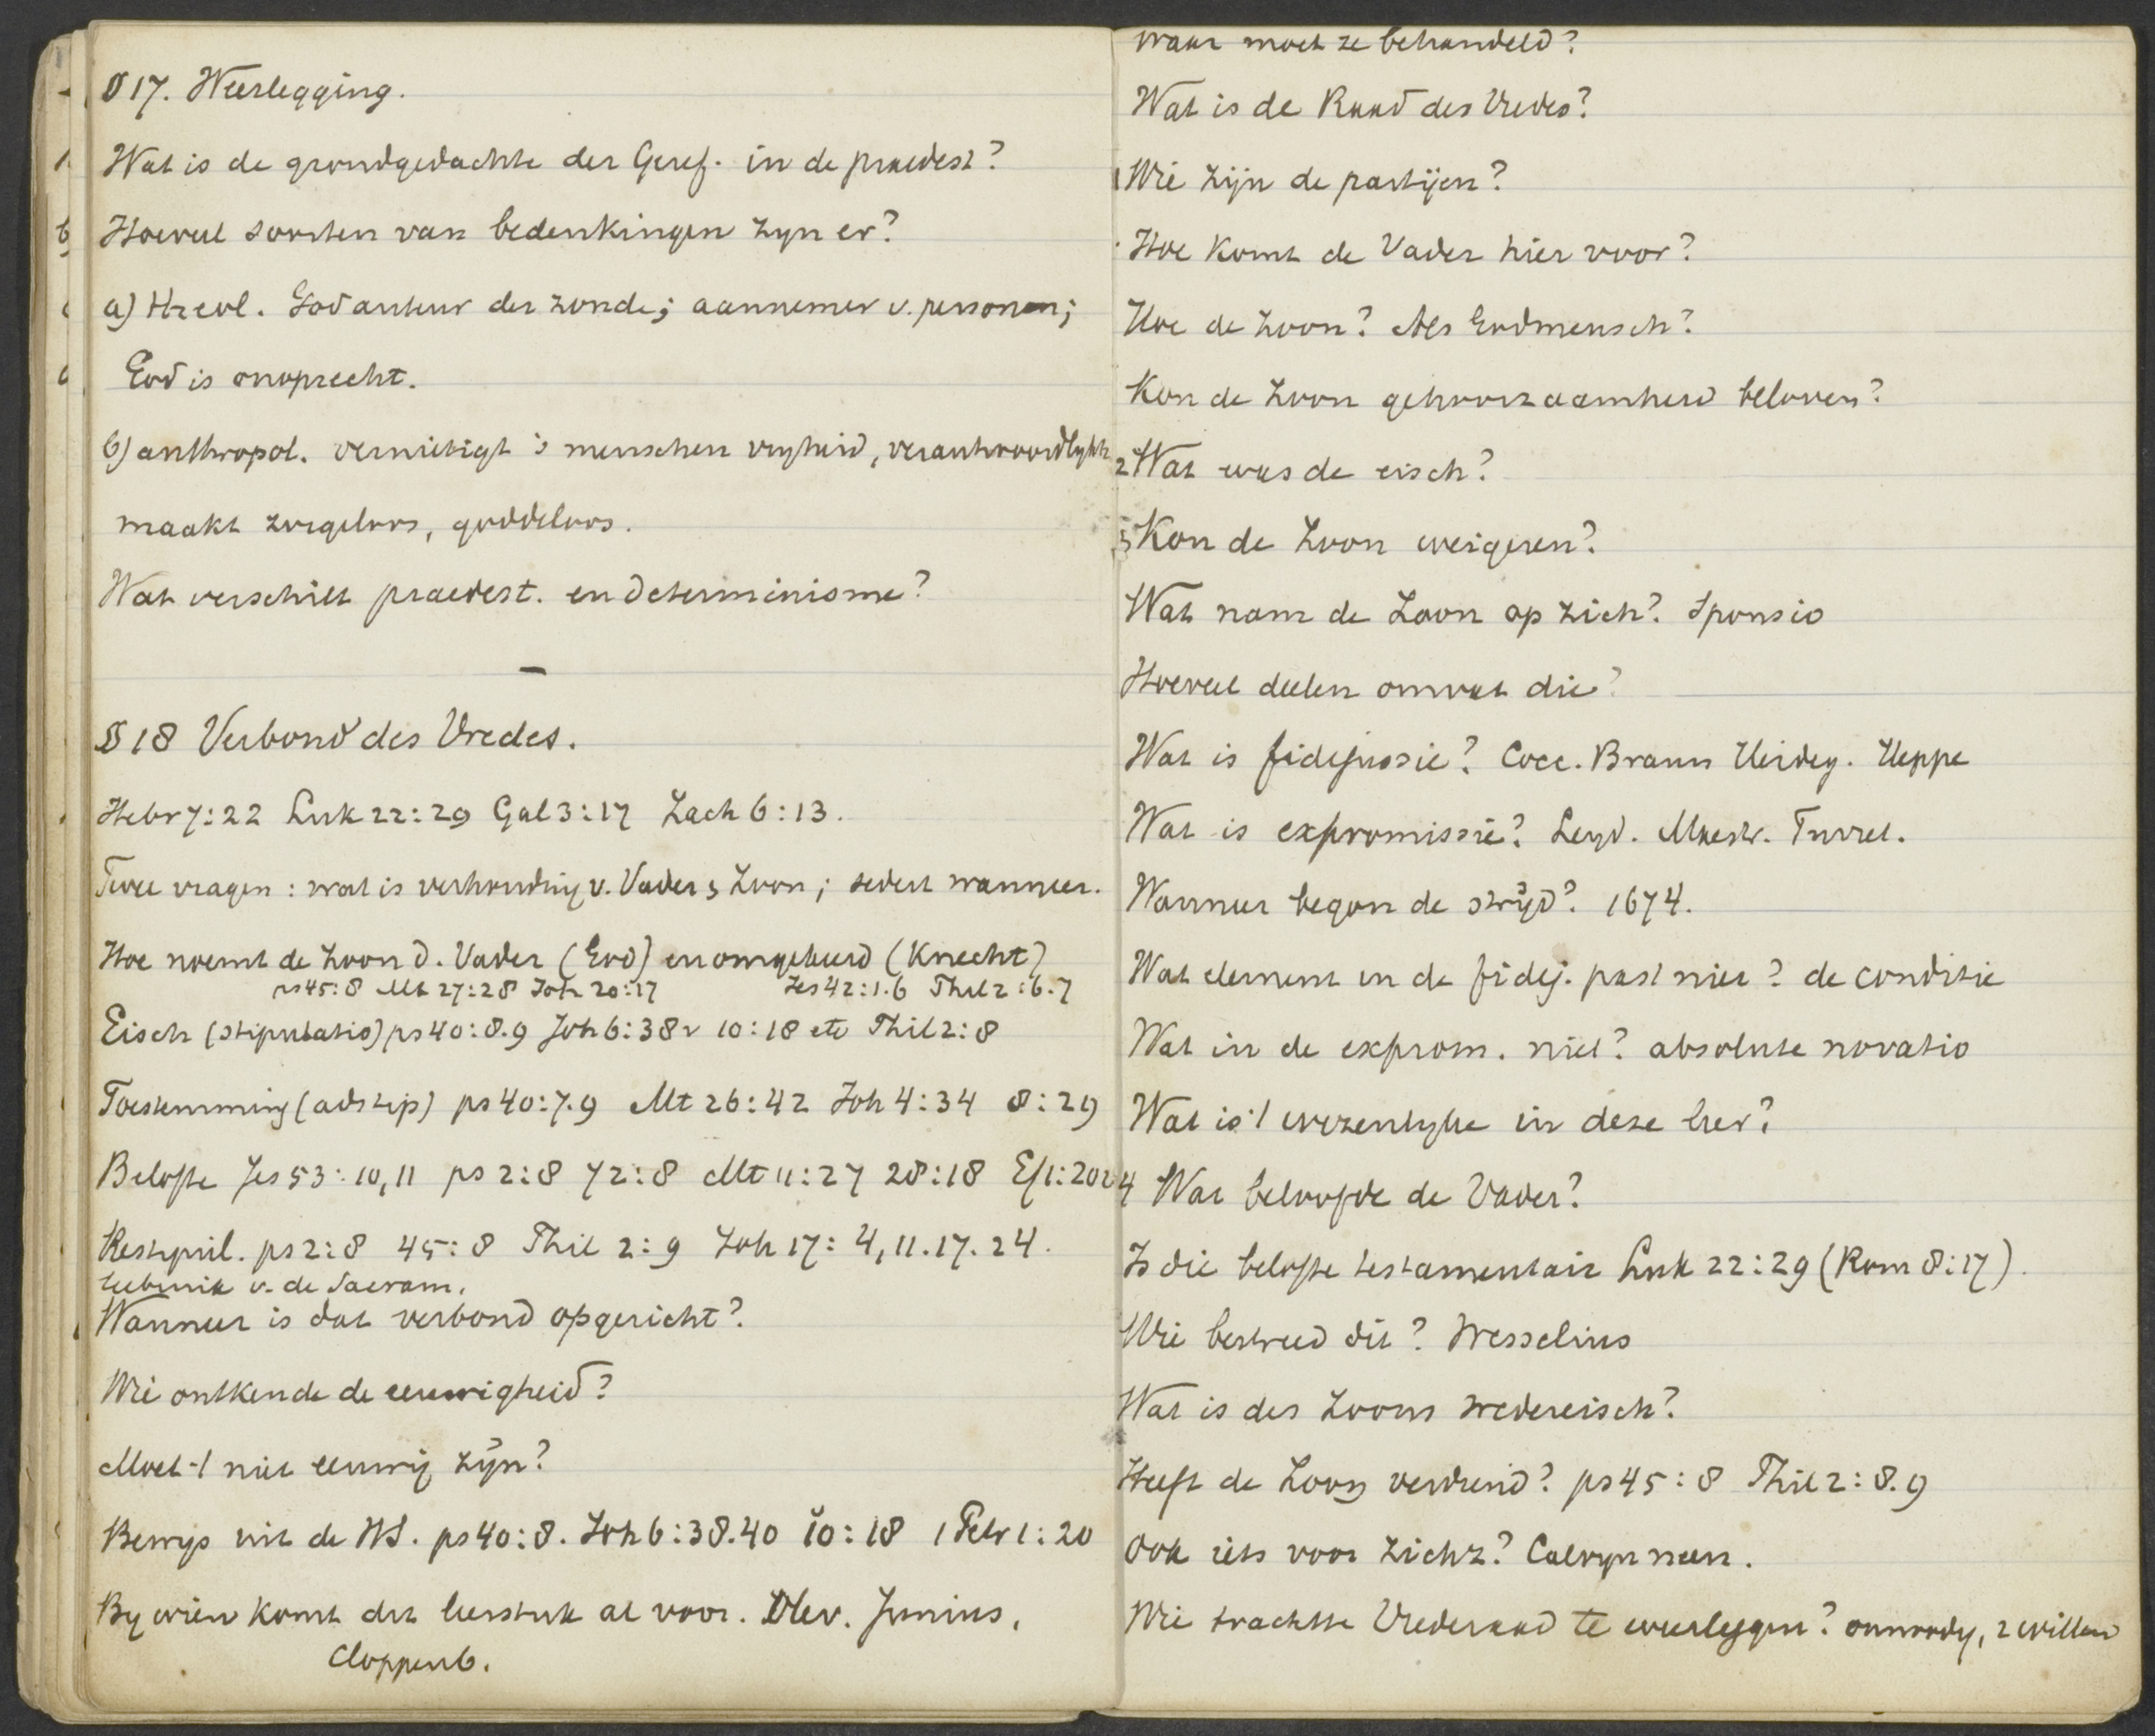 § 17. Weerlegging.
Wat is de grondgedachte der Geref. in de praedest?
Hoeveel soorten van bedenkingen zyn er?
a) theol. God auteur der zonde; aannemer v. personen;
God is onoprecht.
b) anthropol. vernietigt 's menschen vryheid, verantwoordlykh
maakt zorgeloos, goddeloos.
Wat verschilt praedest. en determinisme?
—
§ 18 Verbond des Vredes.
Hebr 7:22 Luk 22:29 Gal 3:17 Zach 6:13.
Twee vragen: wat is verhouding v. Vader & Zoon; sedert wanneer.
Hoe noemt de Zoon d. Vader (God) en omgekeerd (Knecht)
ps 45:8 Mt 27:28 Joh 20:17 Jes 42:1.6 Phil 2:6.7
Eisch (stipulatio) ps 40:8.9 Joh 6:38v 10:18 etc Phil 2:8
Toestemming (adstip) ps 40:7.9 Mt 26:42 Joh 4:34 8:29
Belofte Jes 53:10,11 ps 2:8 72:8 Mt 11:27 28:18 Ef 1:20v
Restipul. ps 2:8 45:8 Phil 2:9 Joh 17:4,11.17.24.
gebruik v. de Sacram.
Wanneer is dat verbond opgericht?
Wie ontkende de eeuwigheid?
Moet 't niet eeuwig zijn?
Bewys uit de HS. ps 40:8. Joh 6:38.40 10:18 1 Petr 1:20
By wien komt dit leerstuk al voor. Olev. Junius,
Cloppenb.
waar moet ze behandeld?
Wat is de Raad des Vredes?
1 Wie zijn de partijen?
Hoe komt de Vader hier voor?
Hoe de Zoon? Als Godmensch?
Kon de Zoon gehoorzaamheid beloven?
2 Wat was de eisch?
3 Kon de Zoon weigeren?
Wat nam de Zoon op zich? Sponsio
Hoeveel deelen omvat die?
Wat is fidejussie? Cocc. Braun Heideg. Heppe
Wat is expromissie? Leyd. Maestr. Turret.
Wanneer begon de strijd? 1674.
Wat element in de fidej. past niet? de conditie
Wat in de exprom. niet? absolute novatio
Wat is 't wezenlyke in deze leer?
4 Wat beloofde de Vader?
Is die belofte testamentair Luk 22:29 (Rom 8:17).
Wie bestreed dit? Wesselius
Wat is des Zoons wedereisch?
Heeft de Zoon verdiend? ps 45:8 Phil 2:8.9
Ook iets voor zichz? Calvyn neen.
Wie trachtte Vrederaad te weerleggen? onnoodig, 2 willen